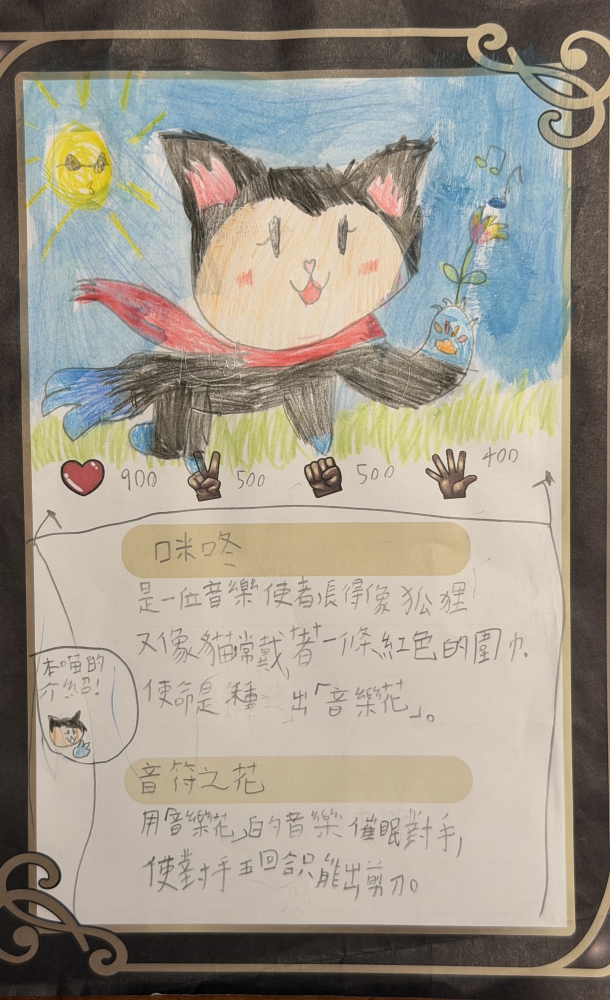 900 500 500 400
咪咚
是一位音樂使者長得像狐狸
又像貓常戴著一條紅色的圍巾。
使命是種出「音樂花」。
本喵的
介紹!
音符之花
用「音樂花」的音樂催眠對手,
使對手五回合只能出剪刀。